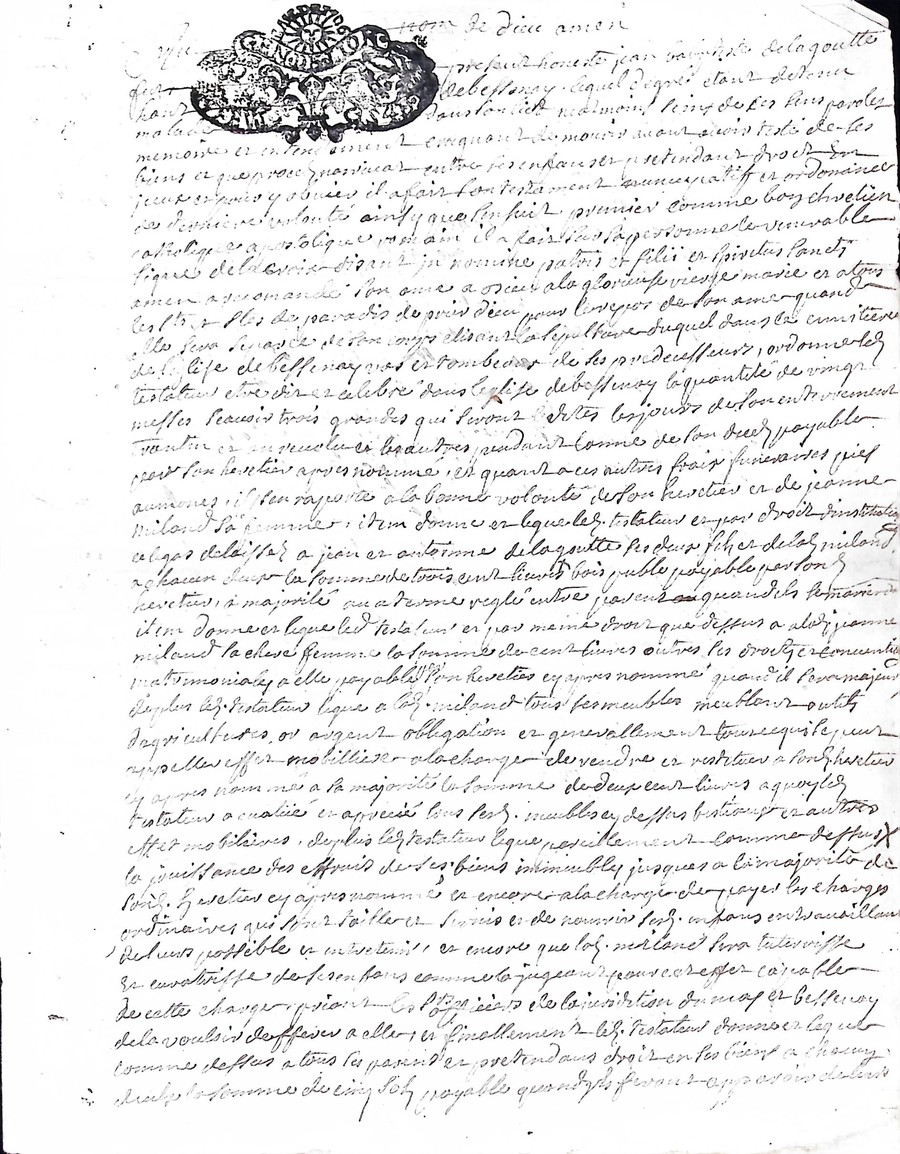 nom de dieu amen
present honeste jean delagoutte
de bessenay lequel de gre etant detenu
malade dans son lict neatmoins seing de ses sens parolles
memoire et entendement craignant de mourir avant avoir testé de ses
biens et que proces narrivat entre ses enfans et pretendant droit en
iceux et pour y obvier il a fait son testament nuncupatif et ordonnance
de derniere volonté ainsy que sensuit premier comme bon chretien
catholique apostolique romain il a fait sur sa personne le venerable
signe de la croix disant in nomine patris et filii et spiritus sancti
amen a recomandé son ame a dieu a la glorieuse vierge marie et a tous
les sts et stes de paradis de prier dieu pour le repos de son ame quand
elle sera separée de son corps elisant sa sepulture duquel dans la cimitiere
de leglise de bessenay vas et tombeaux de ses predecesseurs, ordonne led
testateur etre dit et celebré dans leglise de bessenay la quantité de vingt
messes scauoir trois grandes qui seront dites les jours de son enterrement
et au revolu et les autres pendant lanné de son deces payable
par son heretier apres nommé, et quant a ces autres frais funeraires pies
aumones, il sen raporte a la bonne volonté de son heretier et de jeanne
miland sa femme, item donne et legue led testateur et par droit dinstitution
a jean et antoinne delagoutte ses deux fils et de lad miland
a chacun deux la somme de trois cent livres payable par sond
heretier, a majorité ou a terme reglé entre parent quand ils se marieront
item donne et legue led testateur et par meme droit que dessus a lad jeanne
miland sa chere femme la somme de cent livres outres ses droits et convention
matrimoniales a elle payable par son heretier cy apres nommé quand il sera majeur
de plus led testateur legue a lad miland tous ses meubles meublant outils
dagricultures, or argent obligation et generallement tout ce qui se peut
appeller effet mobilliere a la charge de rendre et restituer a sond heretier
cy apres nommé a sa majorité la somme de deux cent livres a quoy led
testateur a evalué et aprecié tous sesd. meubles cy dessus bestiaux et autres
effet mobilieres, de plus led testateur legue pareillement comme dessus X
la jouissance des effruis de ses biens immeubles jusques a la majorité de
sond. heretier cy apres nommé et encore a la charge de payer les charges
ordinaires qui sont taille et servis et de nourrir sesd. enfans en travaillant
de leurs possible et entretenir, et encore que lad. miland sera tuterisse
et curatrisse de ses enfans comme la jugeant pour cet effet capable
de cette charge, priant les srs officiers de la jurisdition du mas et bessenay
de la vouloir defferer a elle, et finallement led. testateur donne et legue
comme dessus a tous ses parens et pretendans droit en ses biens a chacun
deux la somme de cinq sols payable quand ils feront apparoir de leurs